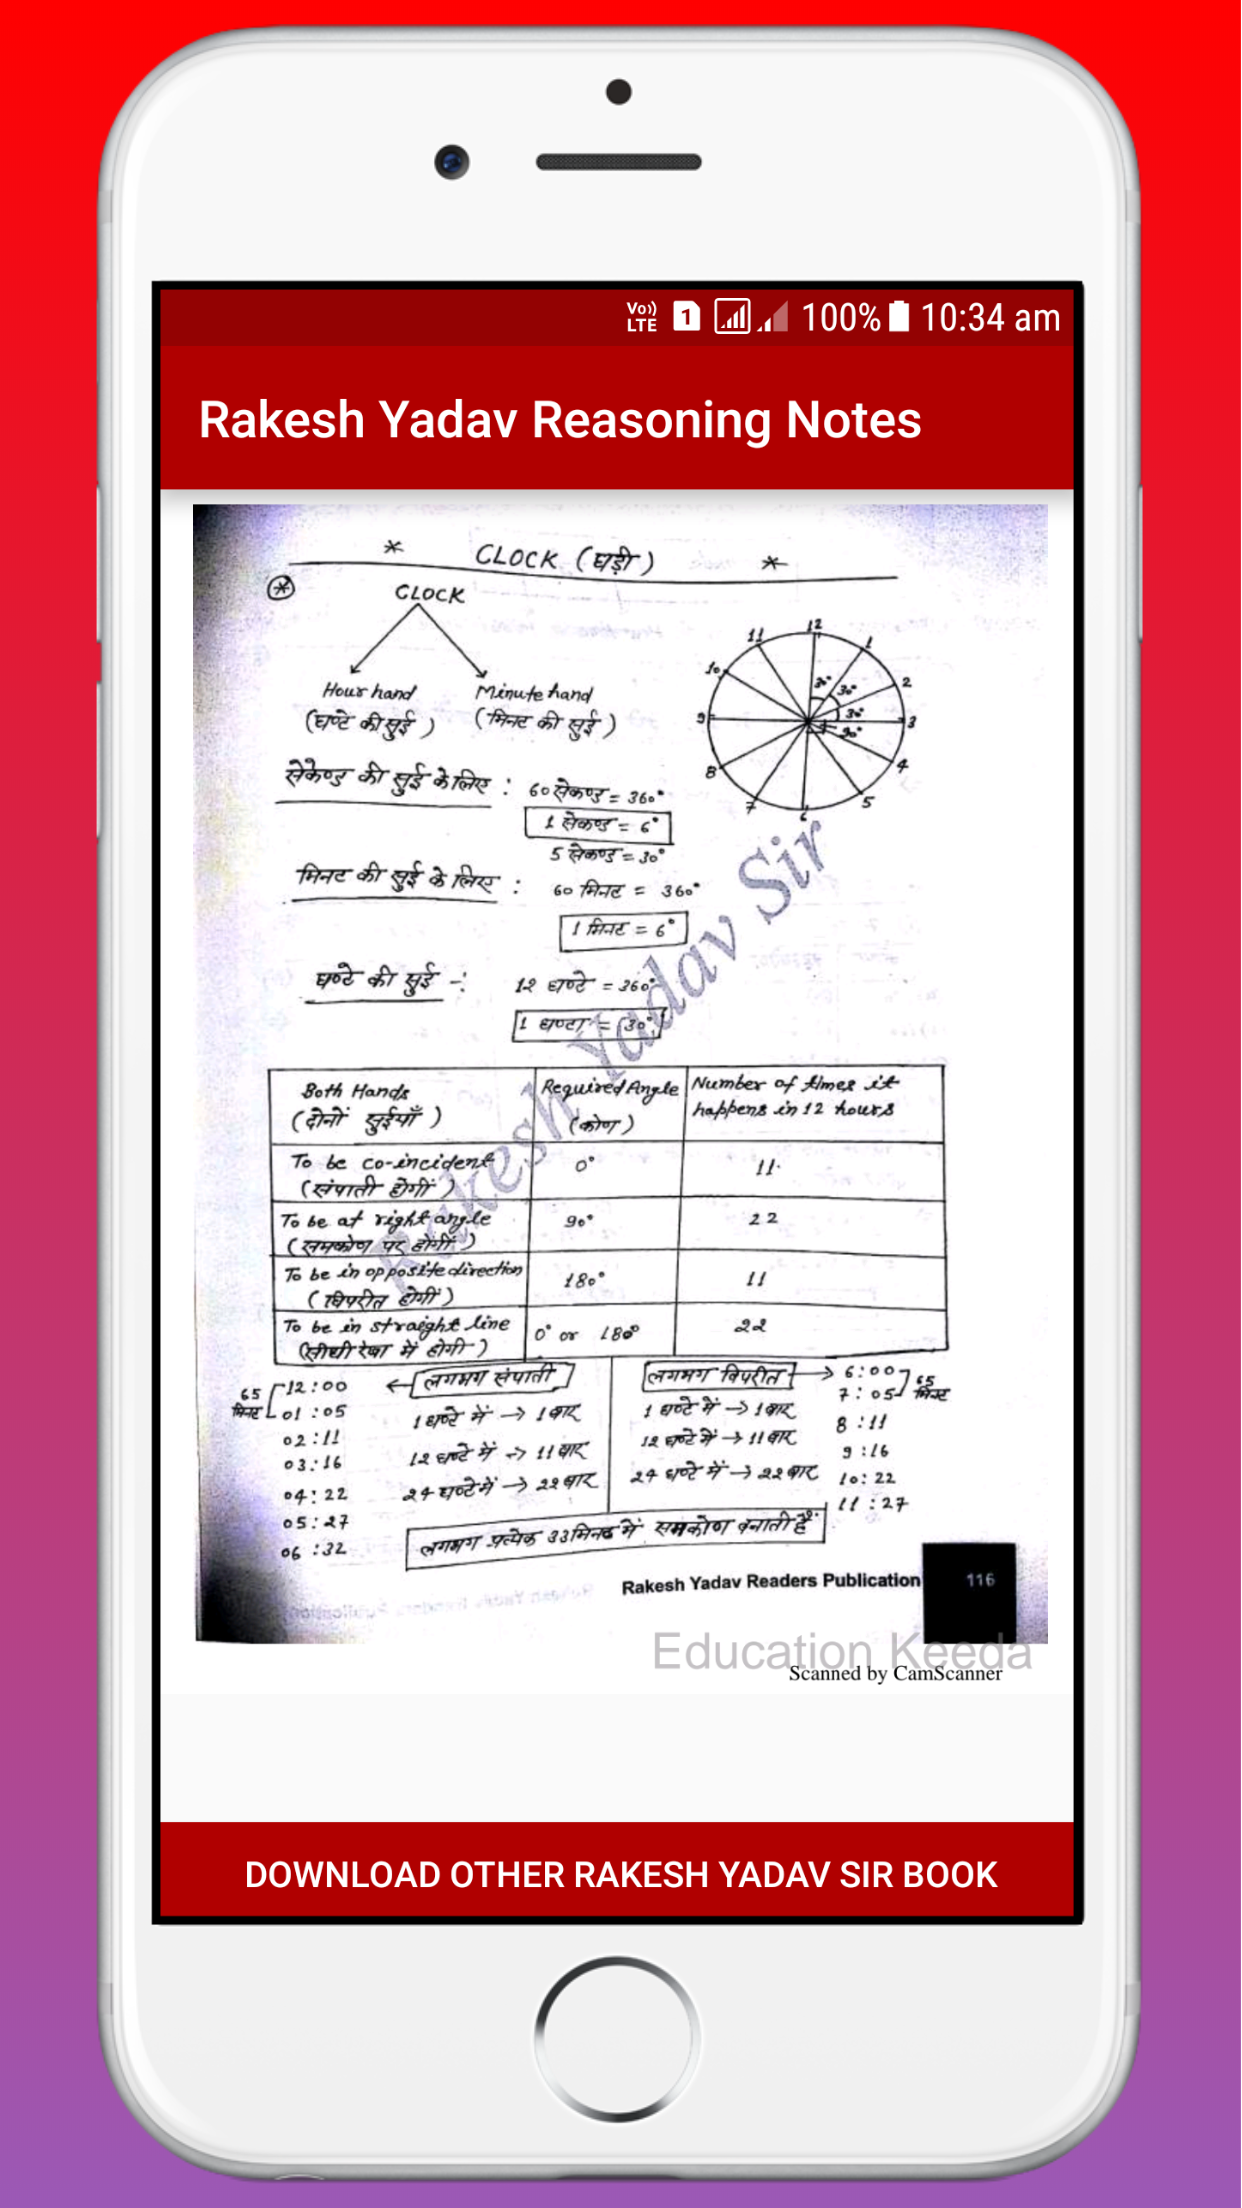 Vo)) LTE 1 100% 10:34 am
Rakesh Yadav Reasoning Notes
* CLOCK (घड़ी) *
CLOCK
Hour hand
(घण्टे की सुई)
Minute hand
(मिनट की सुई)
12
11 1
10 2
9 3
8 4
7 5
6
30° 30° 30° 90°
सेकेण्ड की सुई के लिए : 60 सेकण्ड = 360°
1 सेकण्ड = 6°
5 सेकण्ड = 30°
मिनट की सुई के लिए : 60 मिनट = 360°
1 मिनट = 6°
घण्टे की सुई -: 12 घण्टे = 360°
1 घण्टा = (30°)
Rakesh Yadav Sir
Both Hands (दोनों सुईयाँ) Required Angle (कोण) Number of times it happens in 12 hours
To be co-incident (संपाती होगीं) 0° 11
To be at right angle (समकोण पर होगीं) 90° 22
To be in opposite direction (विपरीत होगीं) 180° 11
To be in straight line (सीधी रेखा में होगी) 0° or 180° 22
लगभग संपाती
65 मिनट
12:00
01:05
02:11
03:16
04:22
05:27
06:32
1 घण्टे में → 1 बार
12 घण्टे में → 11 बार
24 घण्टे में → 22 बार
लगभग विपरीत
1 घण्टे में → 1 बार
12 घण्टे में → 11 बार
24 घण्टे में → 22 बार
6:00
7:05
65 मिनट
8:11
9:16
10:22
11:27
लगभग प्रत्येक 33 मिनट में समकोण बनाती हैं
Rakesh Yadav Readers Publication 116
Education Keeda
Scanned by CamScanner
DOWNLOAD OTHER RAKESH YADAV SIR BOOK